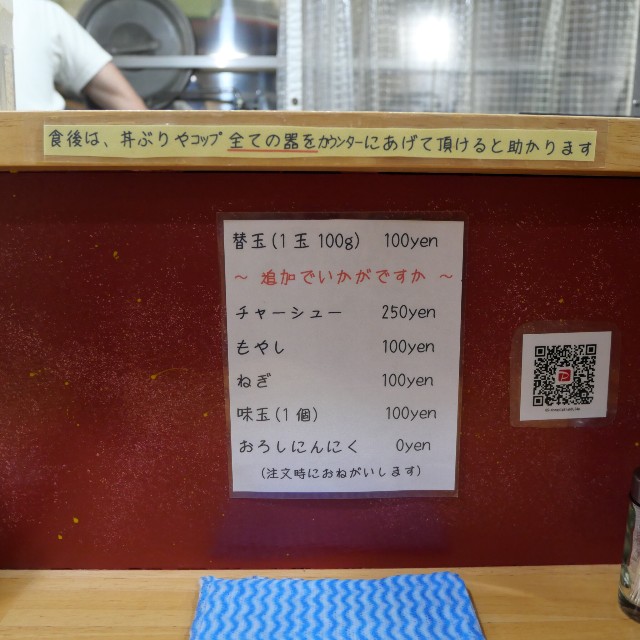 食後は、丼ぶりやコップ全ての器をカウンターにあげて頂けると助かります
替玉(1玉 100g) 100yen
～ 追加でいかがですか ～
チャーシュー 250yen
もやし 100yen
ねぎ 100yen
味玉(1個) 100yen
おろしにんにく 0yen
(注文時におねがいします)